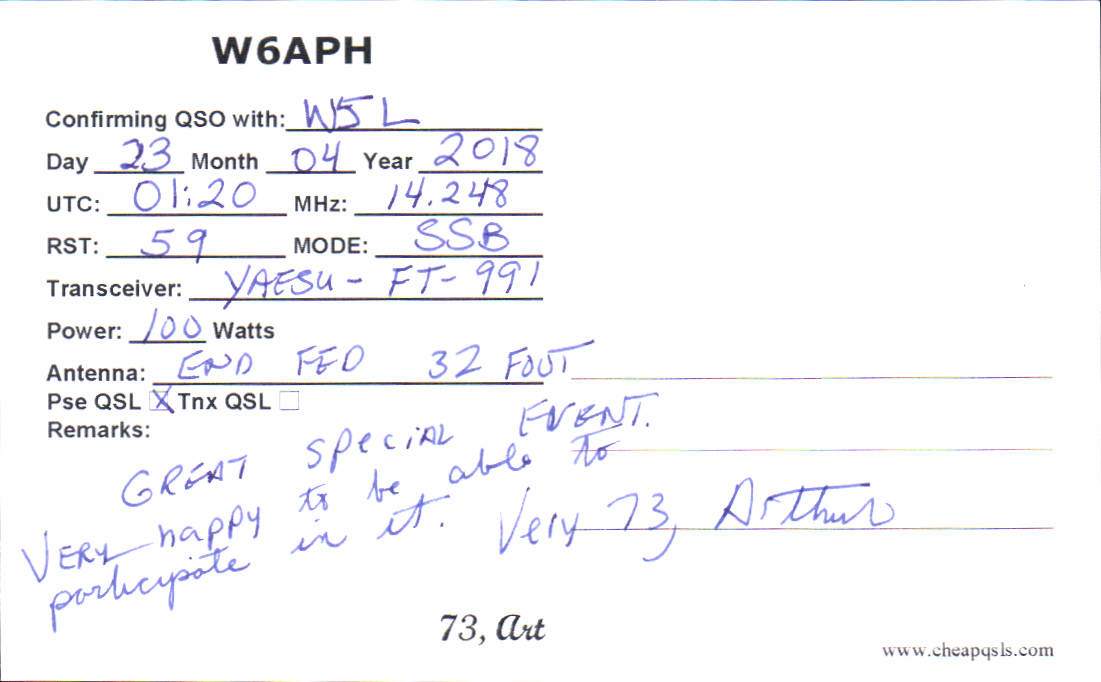 W6APH
Confirming QSO with: W5L
Day 23 Month 04 Year 2018
UTC: 01:20 MHz: 14.248
RST: 59 MODE: SSB
Transceiver: YAESU - FT-991
Power: 100 Watts
Antenna: END FED 32 FOOT
Pse QSL X Tnx QSL
Remarks:
GREAT SPECIAL EVENT.
VERY happy to be able to
participate in it. Very 73, Arthur
73, Art
www.cheapqsls.com